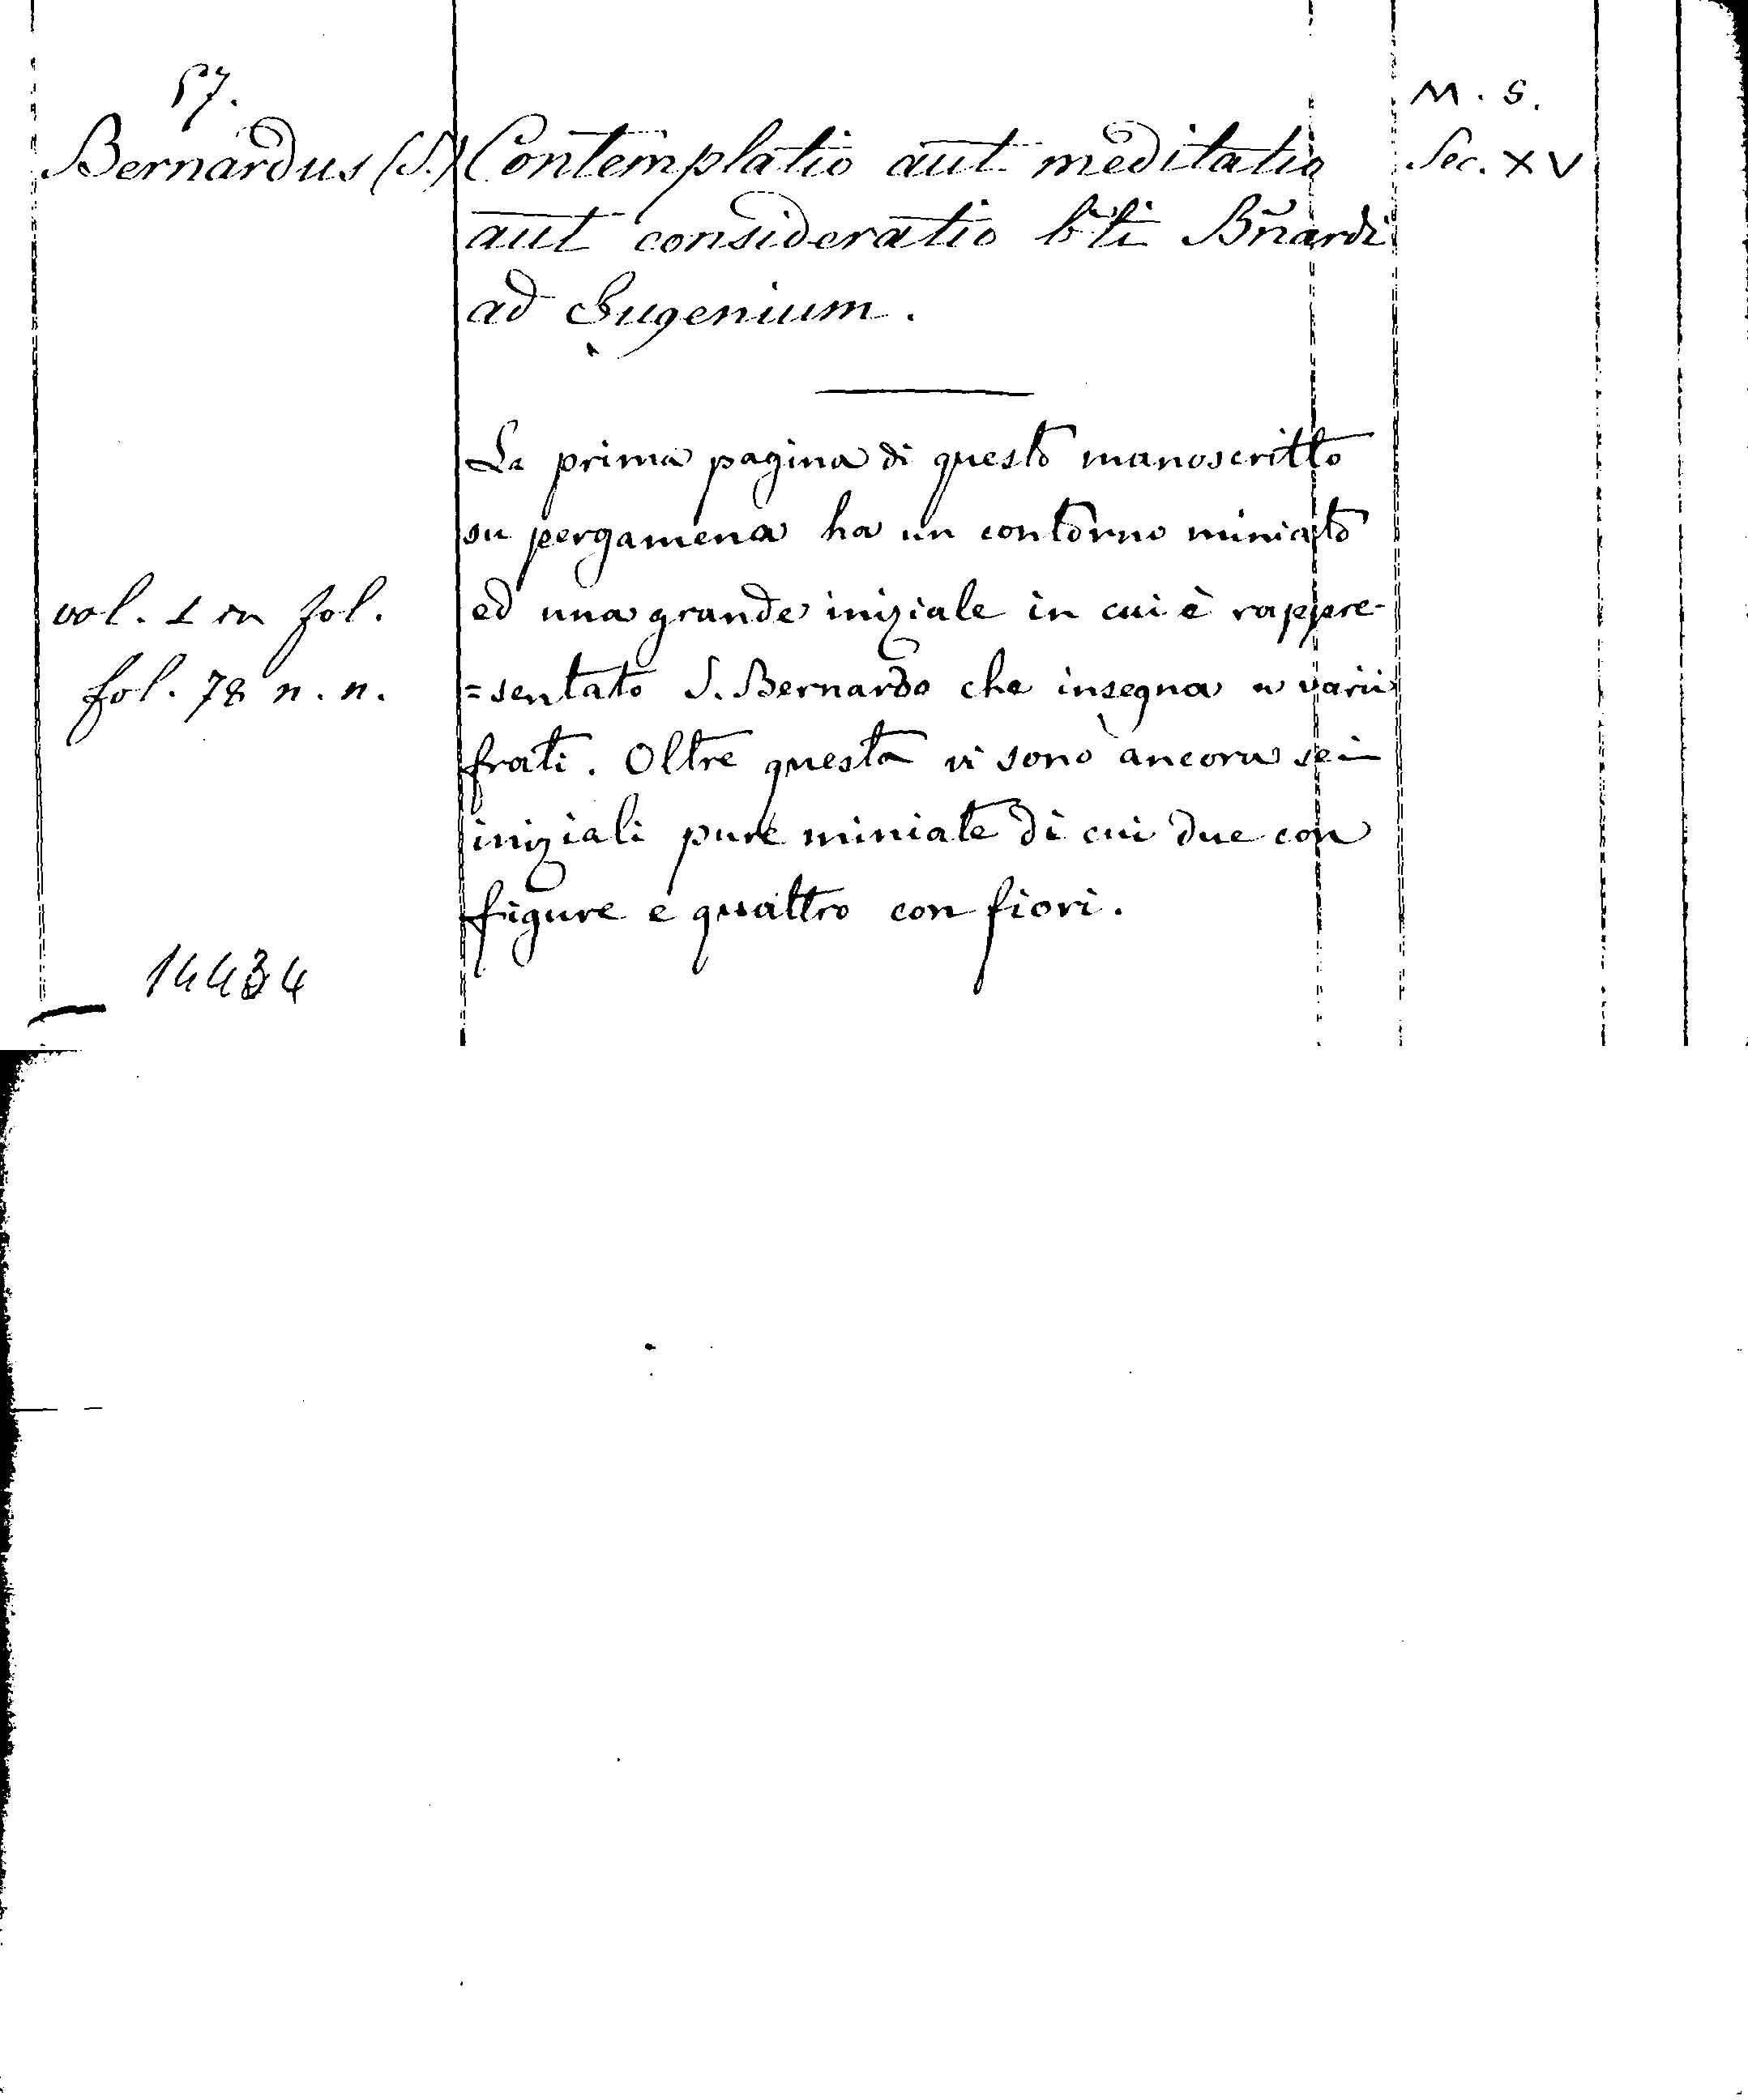 57.
M. S.
Bernardus (S.) Contemplatio aut meditatio Sec. XV
aut consideratio b̃ti Bñardi
ad Eugenium.
La prima pagina di questo manoscritto
su pergamena ha un contorno miniato
vol. 1 in fol.
ed una grande iniziale in cui è rappre-
fol. 78 n. n.
=sentato S. Bernardo che insegna a varii
frati. Oltre questa vi sono ancora sei
iniziali pure miniate di cui due con
figure e quattro con fiori.
14434